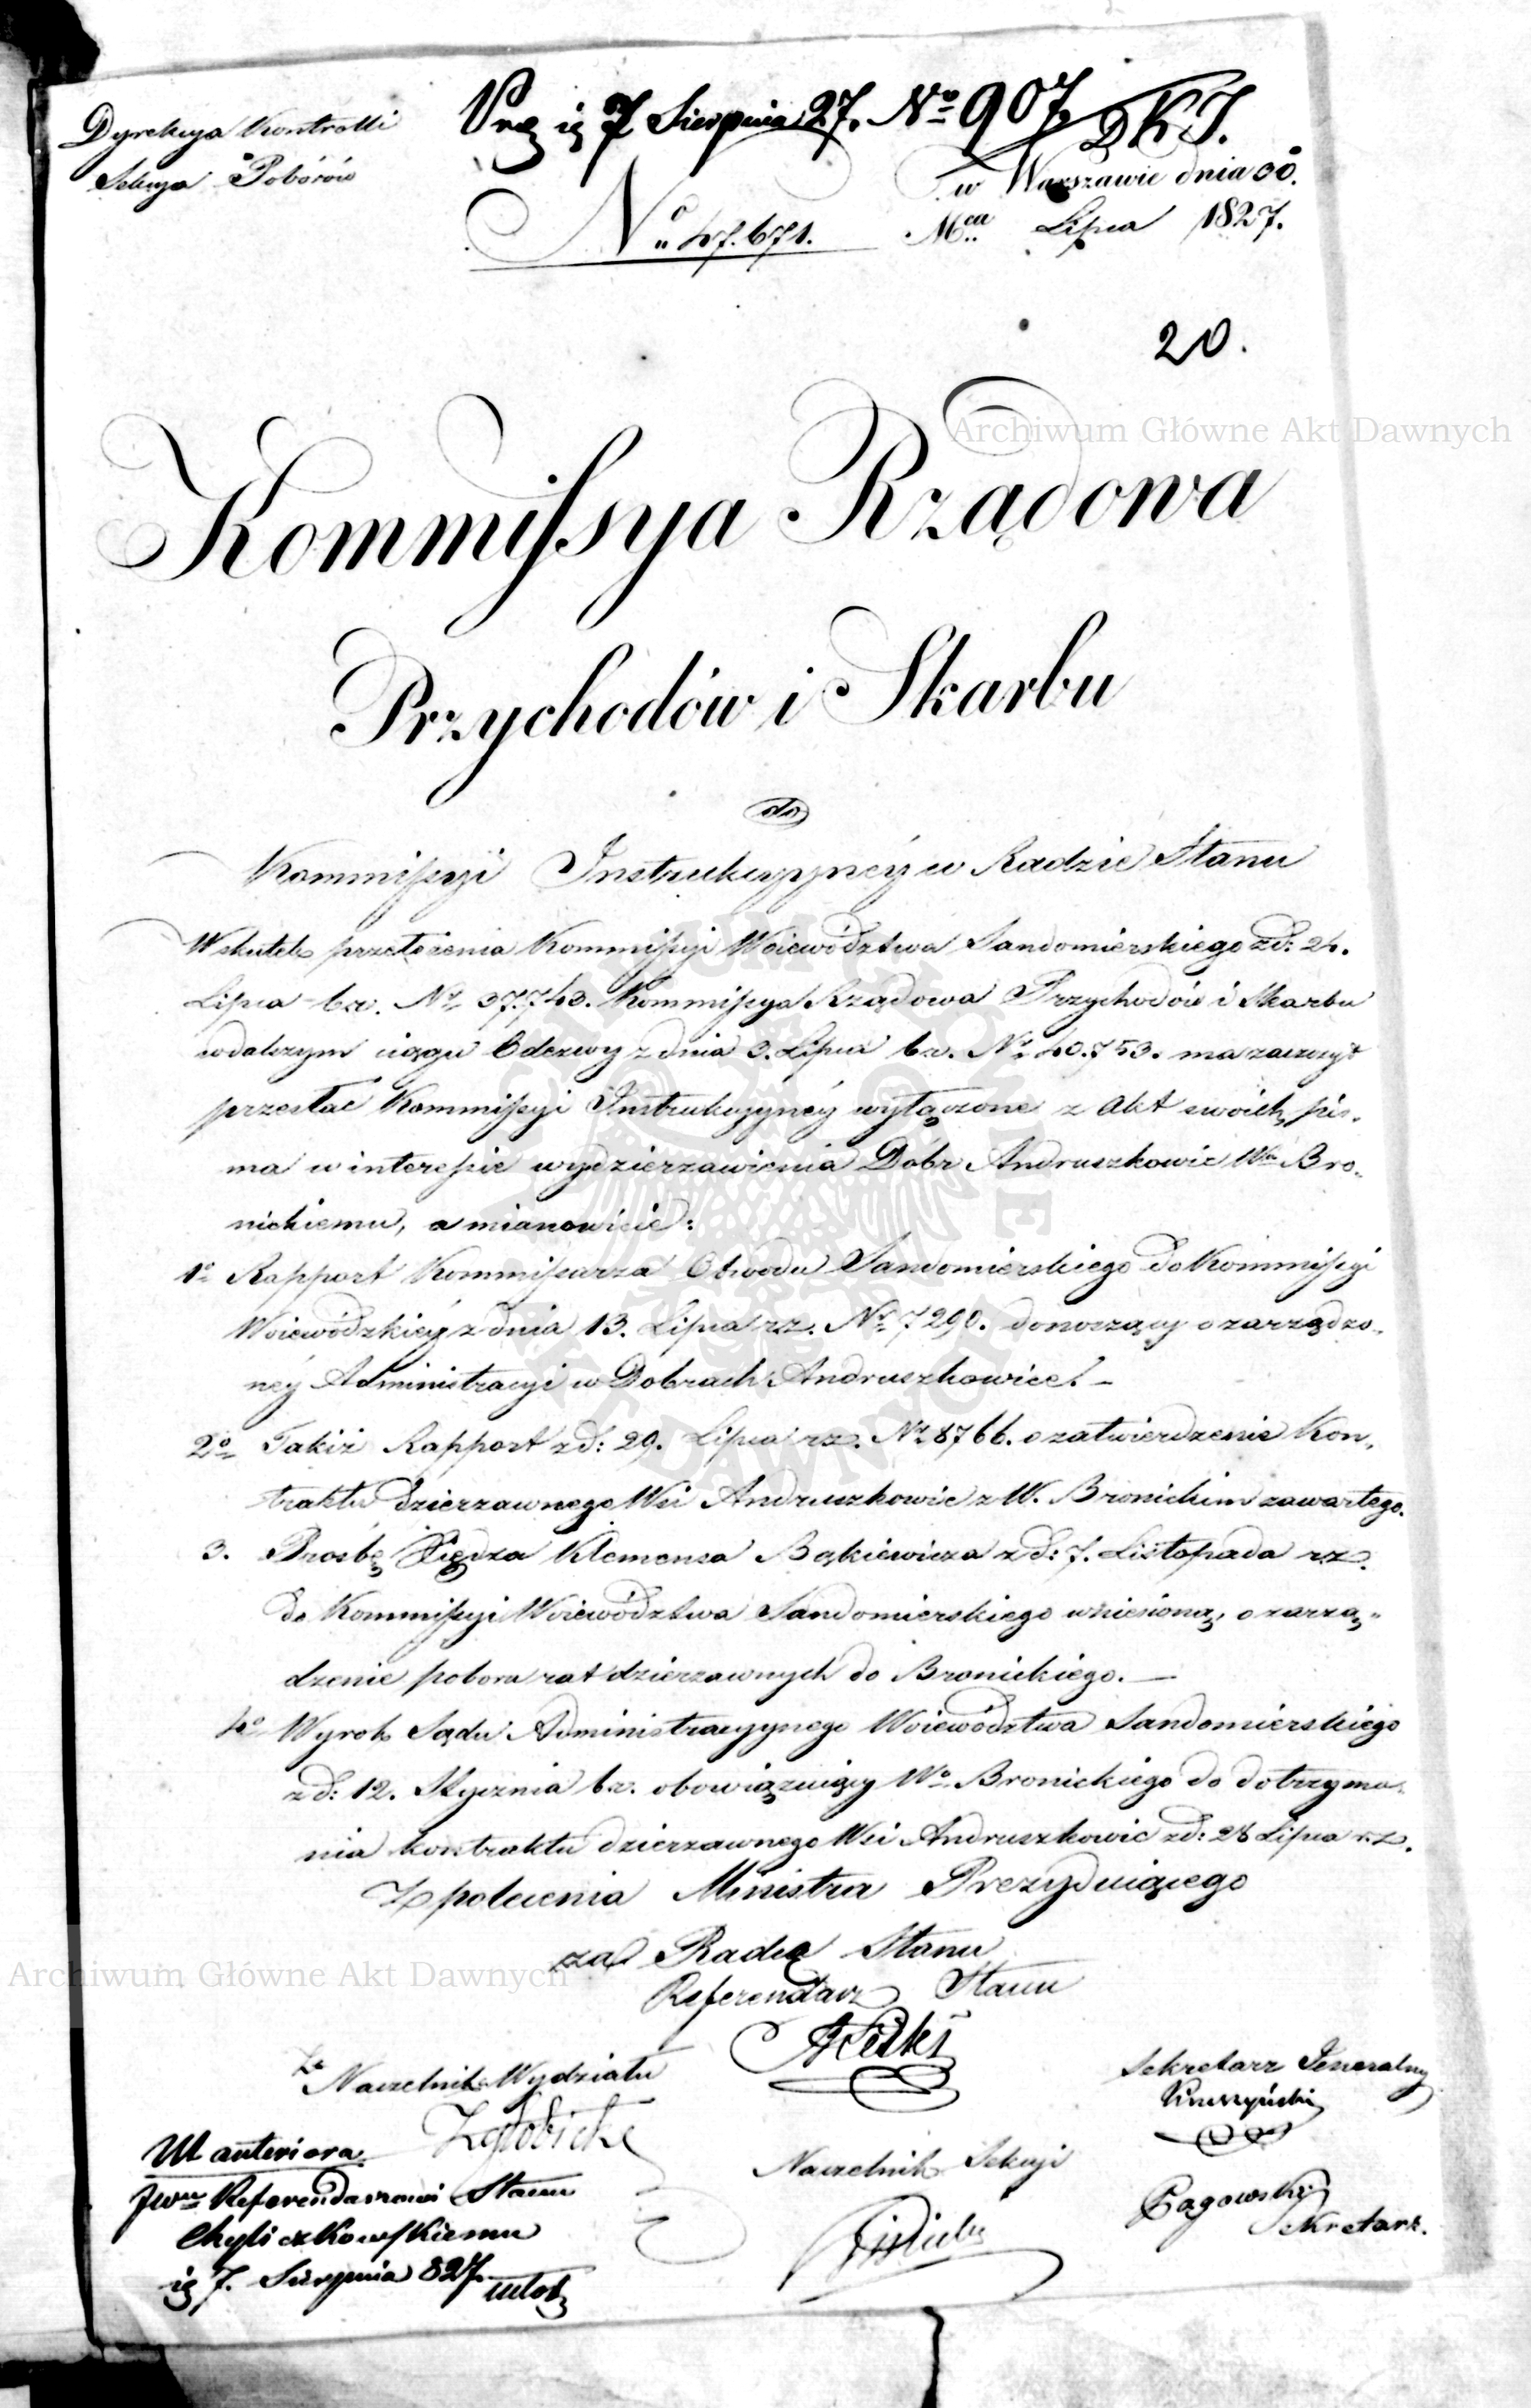 Dyrekcya Kontrolli
Sekcya Poborów
Prez ię 7 Sierpnia 27. No 907. DKJ.
No 47.671.
w Warszawie dnia 30.
Mca Lipca 1827.
20.
Kommissya Rządowa
Przychodów i Skarbu
do
Kommissyi Instrukcyyney w Radzie Stanu
Wskutek przełożenia Kommissyi Woiewództwa Sandomierskiego z d: 24.
Lipca b.r. Nr 37.743. Kommissya Rządowa Przychodów i Skarbu
w dalszym ciągu Odezwy z dnia 3. Lipca b.r. Nr 40.753. ma zaszczyt
przesłać Kommissyi Instrukcyyney wyłączone z Akt swoich pis-
ma w interessie wydzierzawienia Dóbr Andruszkowic Wu Bro-
nickiemu, a mianowicie:
1o Rapport Kommissarza Obwodu Sandomierskiego do Kommissyi
Woiewódzkiey z dnia 13. Lipca r.z. Nr 7290. donoszący o zarządzo-
ney Administracyi w Dobrach Andruszkowice. -
2o Takiż Rapport z d: 29. Lipca r.z. Nr 8766. o zatwierdzenie Kon-
traktu dzierzawnego Wsi Andruszkowic z W. Bronickim zawartego.
3. Prosbę Xiędza Klemensa Bąkiewicza z d: 7. Listopada r.z.
do Kommissyi Woiewództwa Sandomierskiego wniesioną, o zarzą-
dzenie poboru rat dzierzawnych do Bronickiego. —
4o Wyrok Sądu Administracyynego Woiewództwa Sandomierskiego
z d: 12. Stycznia b.r. obowiązuiący Wo Bronickiego do dotrzyma-
nia kontraktu dzierzawnego Wsi Andruszkowic z d: 28 Lipca r.z.
Z polecenia Ministra Prezyduiącego
za Radcę Stanu
Referendarz Stanu
Za Naczelnik Wydziału
Sekretarz Jeneralny
Kruszyński
Ut anteriora
JWu Referendarzowi Stanu
Chyliczkowskiemu
ię 7. Sierpnia 827.
Naczelnik Sekcyi
Sekretarz.
Archiwum Główne Akt Dawnych
Archiwum Główne Akt Dawnych
ARCHIWUM GŁÓWNE AKT DAWNYCH